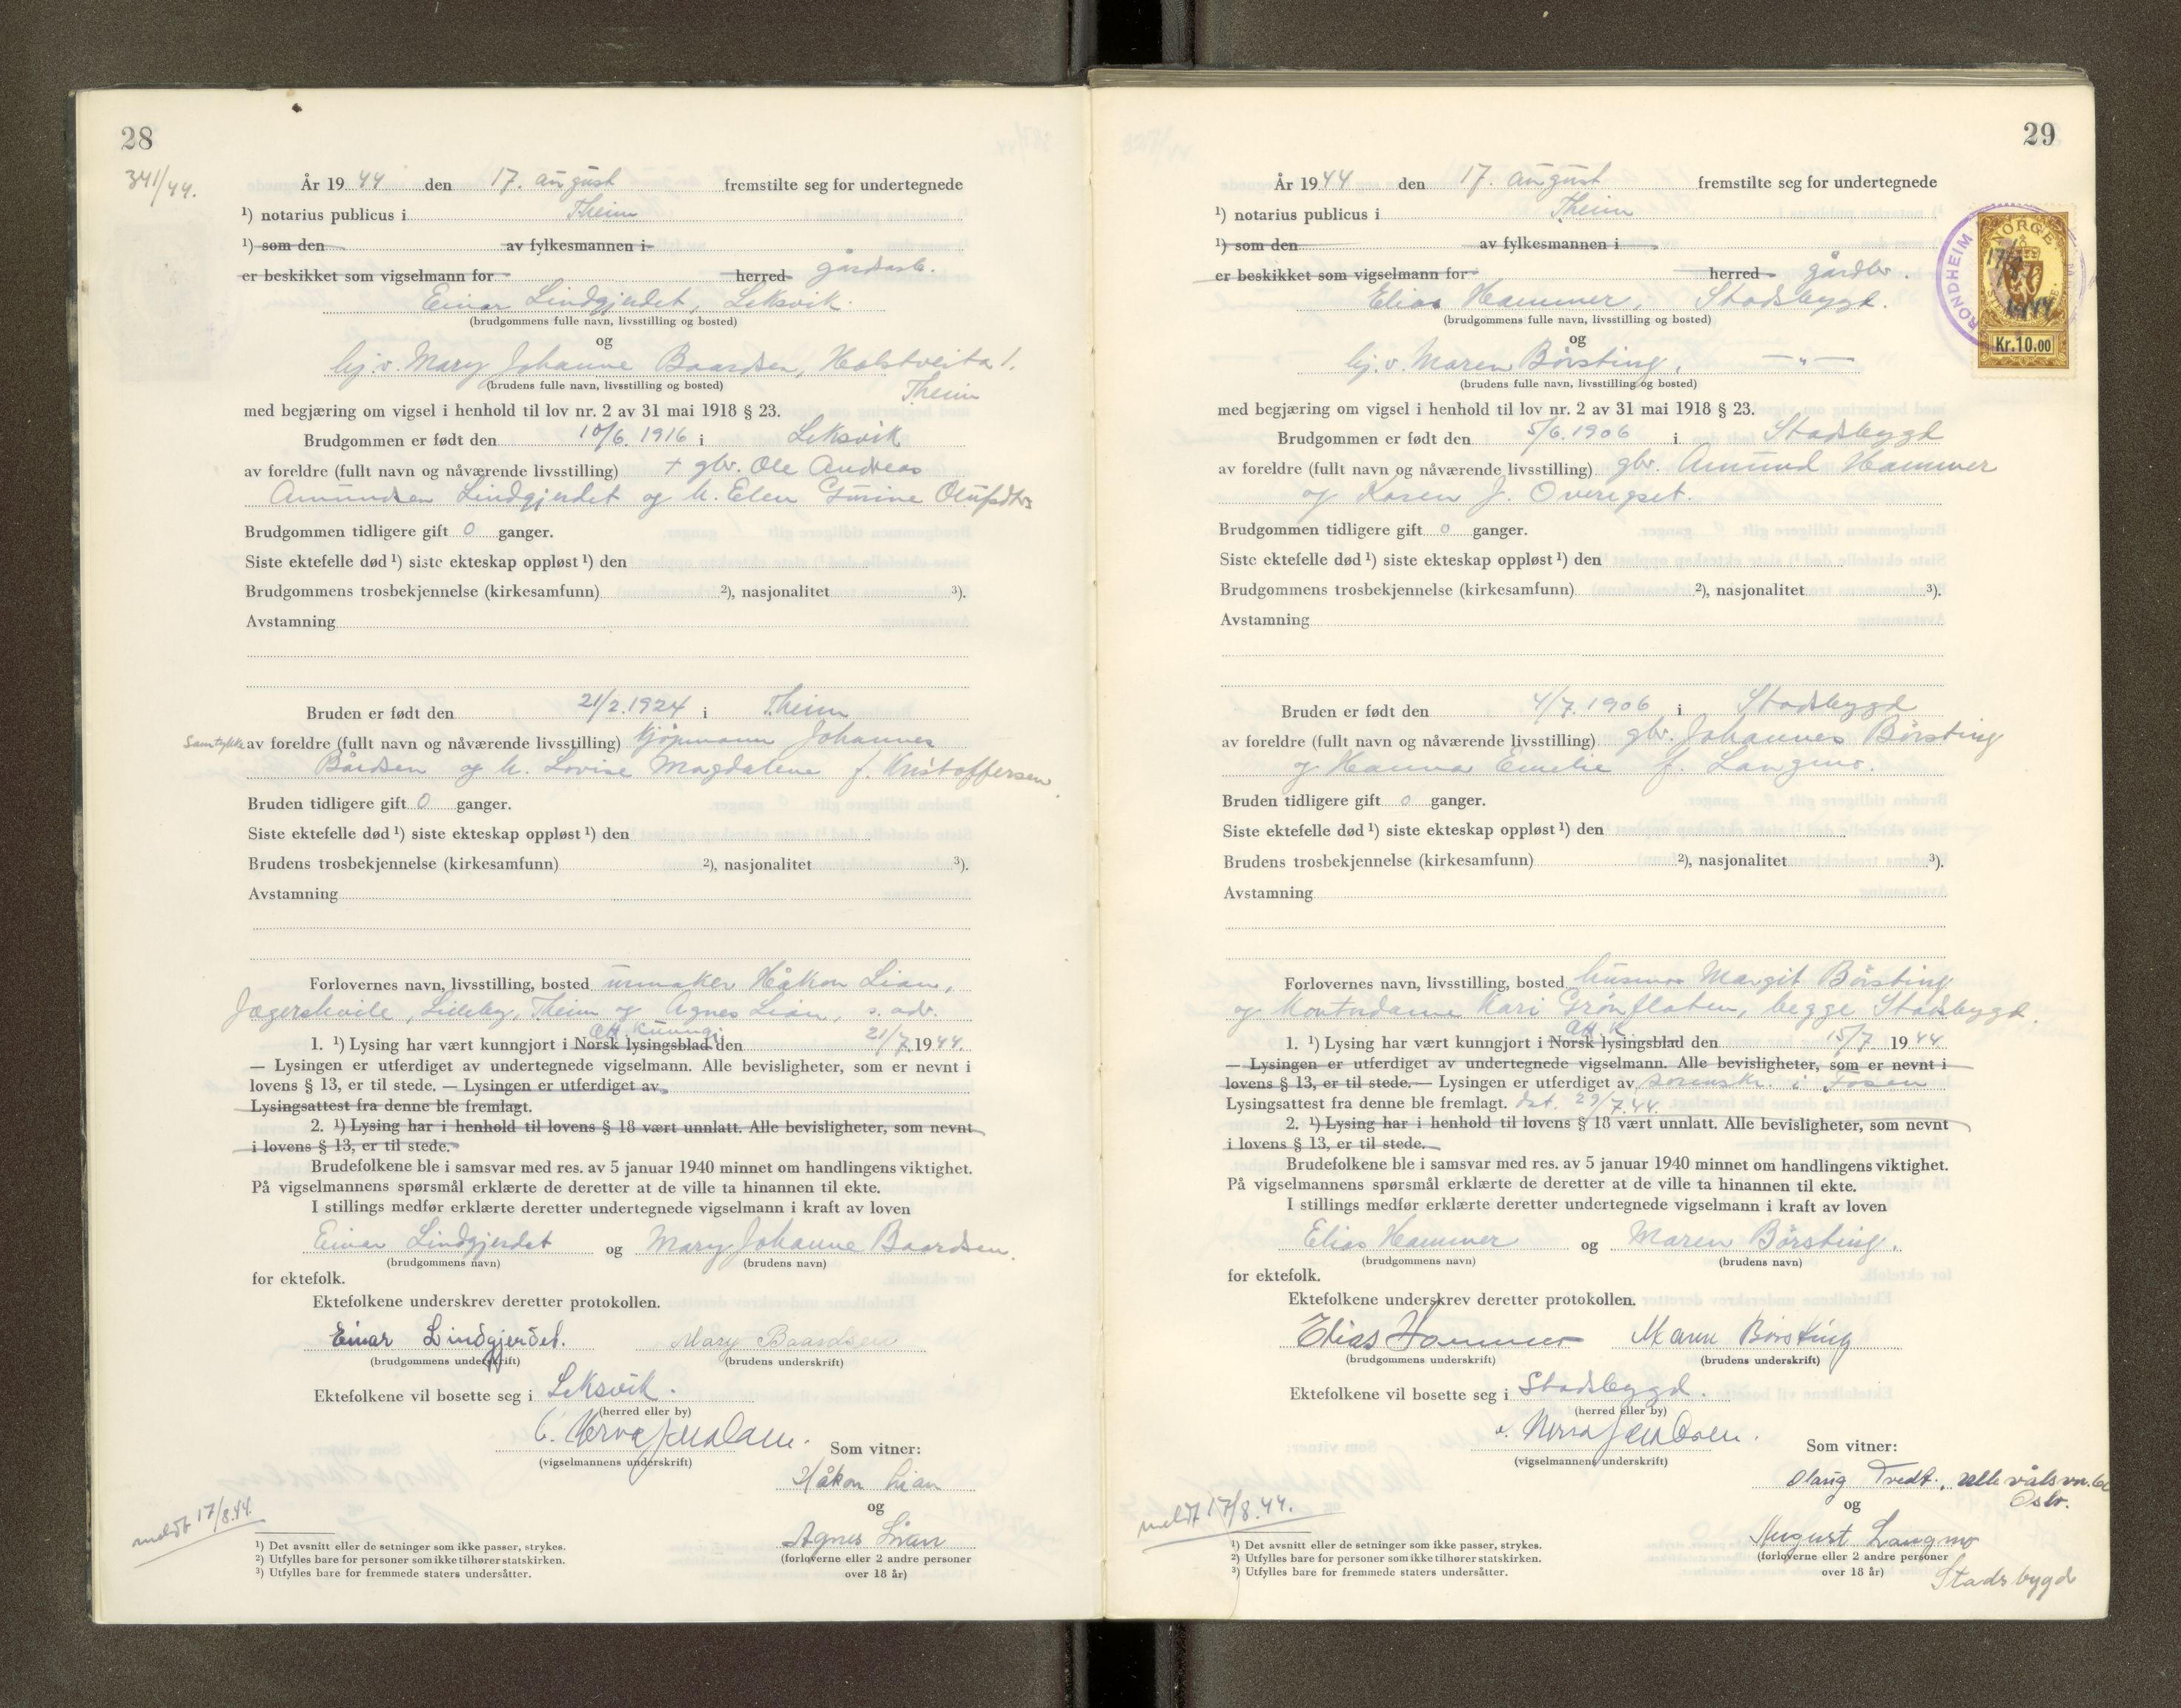 28
341/44.
År 1944 den 17. august fremstilte seg for undertegnede
¹) notarius publicus i Theim
¹) som den av fylkesmannen i
er beskikket som vigselmann for herred gårdsarb.
Einar Lindgjerdet, Leksvik.
(brudgommens fulle navn, livsstilling og bosted)
og
hj. v. Mary Johanne Baardsen, Holstveita 1.
(brudens fulle navn, livsstilling og bosted) Theim
med begjæring om vigsel i henhold til lov nr. 2 av 31 mai 1918 § 23.
Brudgommen er født den 10/6. 1916 i Leksvik
av foreldre (fullt navn og nåværende livsstilling) + gbr. Ole Andreas
Amundsen Lindgjerdet og h. Elen Gurine Olufsdtr
Brudgommen tidligere gift 0 ganger.
Siste ektefelle død ¹) siste ekteskap oppløst ¹) den
Brudgommens trosbekjennelse (kirkesamfunn) ²), nasjonalitet ³).
Avstamning
Bruden er født den 21/2. 1924 i Theim
Samtykke av foreldre (fullt navn og nåværende livsstilling) kjøpmann Johannes
Bårdsen og h. Lovise Magdalene f. Kristoffersen.
Bruden tidligere gift 0 ganger.
Siste ektefelle død ¹) siste ekteskap oppløst ¹) den
Brudens trosbekjennelse (kirkesamfunn) ²), nasjonalitet ³).
Avstamning
Forlovernes navn, livsstilling, bosted urmaker Håkon Lian,
Jægershvile, Lilleby, Theim og Agnes Lian, s. adr.
off. kunngj.
1. ¹) Lysing har vært kunngjort i Norsk lysingsblad den 21/7. 1944.
— Lysingen er utferdiget av undertegnede vigselmann. Alle bevisligheter, som er nevnt i
lovens § 13, er til stede. — Lysingen er utferdiget av
Lysingsattest fra denne ble fremlagt.
2. ¹) Lysing har i henhold til lovens § 18 vært unnlatt. Alle bevisligheter, som nevnt
i lovens § 13, er til stede.
Brudefolkene ble i samsvar med res. av 5 januar 1940 minnet om handlingens viktighet.
På vigselmannens spørsmål erklærte de deretter at de ville ta hinannen til ekte.
I stillings medfør erklærte deretter undertegnede vigselmann i kraft av loven
Einar Lindgjerdet og Mary Johanne Baardsen.
(brudgommens navn) (brudens navn)
for ektefolk.
Ektefolkene underskrev deretter protokollen.
Einar Lindgjerdet. Mary Baardsen
(brudgommens underskrift) (brudens underskrift)
Ektefolkene vil bosette seg i Leksvik.
(herred eller by)
(vigselmannens underskrift)
Som vitner:
Håkon Lian
og
Agnes Lian
(forloverne eller 2 andre personer
over 18 år)
meldt 17/8.44.
¹) Det avsnitt eller de setninger som ikke passer, strykes.
²) Utfylles bare for personer som ikke tilhører statskirken.
³) Utfylles bare for fremmede staters undersåtter.
29
År 1944 den 17. august fremstilte seg for undertegnede
¹) notarius publicus i Theim
¹) som den av fylkesmannen i
er beskikket som vigselmann for herred gårdbr.
Elias Hammer, Stadsbygd.
(brudgommens fulle navn, livsstilling og bosted)
og
hj. v. Maren Børsting, —"—
(brudens fulle navn, livsstilling og bosted)
med begjæring om vigsel i henhold til lov nr. 2 av 31 mai 1918 § 23.
Brudgommen er født den 5/6. 1906 i Stadsbygd
av foreldre (fullt navn og nåværende livsstilling) gbr. Amund Hammer
og Karen J. Overgset.
Brudgommen tidligere gift 0 ganger.
Siste ektefelle død ¹) siste ekteskap oppløst ¹) den
Brudgommens trosbekjennelse (kirkesamfunn) ²), nasjonalitet ³).
Avstamning
Bruden er født den 4/7. 1906 i Stadsbygd
av foreldre (fullt navn og nåværende livsstilling) gbr. Johannes Børsting
og Hanna Emelie f. Langmo.
Bruden tidligere gift 0 ganger.
Siste ektefelle død ¹) siste ekteskap oppløst ¹) den
Brudens trosbekjennelse (kirkesamfunn) ²), nasjonalitet ³).
Avstamning
Forlovernes navn, livsstilling, bosted husmor Margit Børsting
og kontordame Kari Grønflaten, begge Stadsbygd.
off. k.
1. ¹) Lysing har vært kunngjort i Norsk lysingsblad den 15/7 1944
— Lysingen er utferdiget av undertegnede vigselmann. Alle bevisligheter, som er nevnt i
lovens § 13, er til stede. — Lysingen er utferdiget av sorenskr. i Fosen
Lysingsattest fra denne ble fremlagt. dat. 29/7.44.
2. ¹) Lysing har i henhold til lovens § 18 vært unnlatt. Alle bevisligheter, som nevnt
i lovens § 13, er til stede.
Brudefolkene ble i samsvar med res. av 5 januar 1940 minnet om handlingens viktighet.
På vigselmannens spørsmål erklærte de deretter at de ville ta hinannen til ekte.
I stillings medfør erklærte deretter undertegnede vigselmann i kraft av loven
Elias Hammer og Maren Børsting.
(brudgommens navn) (brudens navn)
for ektefolk.
Ektefolkene underskrev deretter protokollen.
Elias Hammer Maren Børsting
(brudgommens underskrift) (brudens underskrift)
Ektefolkene vil bosette seg i Stadsbygd.
(herred eller by)
(vigselmannens underskrift)
Som vitner:
Olaug Tredt, Ullevålsvn. 60
Oslo.
og
August Langmo
(forloverne eller 2 andre personer
over 18 år) Stadsbygd
meldt 17/8.44.
¹) Det avsnitt eller de setninger som ikke passer, strykes.
²) Utfylles bare for personer som ikke tilhører statskirken.
³) Utfylles bare for fremmede staters undersåtter.
NORGE
17/8
1944
Kr.10.00
TRONDHEIM